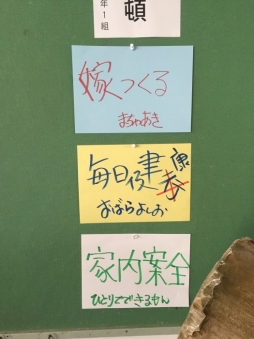 頓
年1組
嫁つくる
まちゃあき
毎日健康
おばらよしお
家内案全
ひとりでできるもん